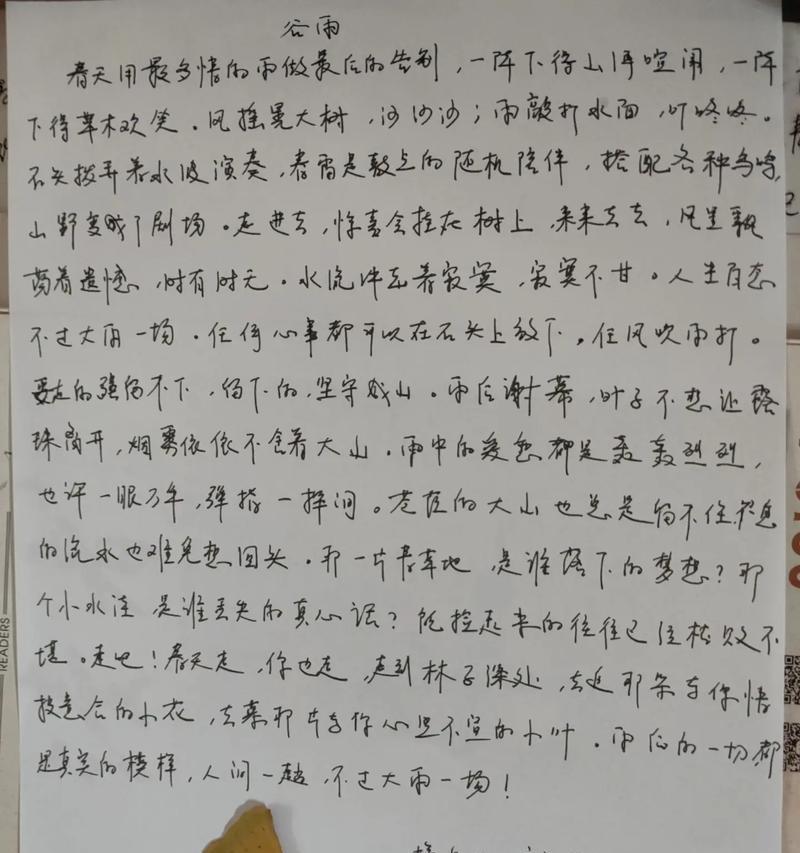 谷雨
春天用最多情的雨做最后的告别，一阵下得山洱喧闹，一阵
下得草木欢笑。风摇晃大树，沙沙沙；雨敲打水面，叮咚咚。
石头拨弄着水波演奏，春雷是鼓点的随机陪伴，搭配各种鸟鸣，
山野变成了剧场。走进去，惊喜会挂在树上，来来去去，风里飘
荡着遗憾，时有时无。水流冲击着寂寞，寂寞不甘。人生百态
不过大雨一场。任何心事都可以在石头上放下，任风吹雨打。
要走的强留不下，留下的，坚守成山。雨后谢幕，叶子不想让露
珠离开，烟雾依依不舍着大山。雨中的爱恋都是轰轰烈烈，
也许一眼万年，弹指一挥间。苍茫的大山也总是留不住
的流水也难免想回头。那一片春草地，是谁落下的梦想？那
个小水洼是谁丢失的真心话？能捡起来的往往已经枯败不
堪。走吧！春天走，你也走，走到林子深处，去追那朵与你情
投意合的小花，去寻那片与你心照不宣的小叶。雨后的一切都
是真实的模样，人间一趟，不过大雨一场！
READERS